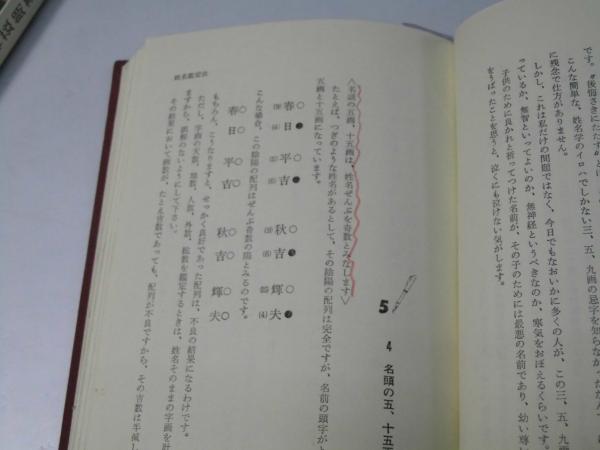 です。〝後悔さきにたたず〟とは
こんな簡単な、姓名学のイロハでしかない三、五、九画の忌字を知らなか
に残念で仕方がありません。
しかし、これは私だけの問題ではなく、今日でもなおいかに多くの人が、この三、五、九
っているか、無智といってよいのか、無神経というべきなのか、寒気をおぼえるくらいです。
子供のために良かれと祈ってつけた名前が、その子のためには最悪の名前であり、幼い尊
をうばったことを思うと、泣くにも泣けない気がします。
姓名鑑定法
5
4 名頭の五、十五画
〈名頭の五画、十五画は、姓名ぜんぶを奇数とみなします〉
たとえば、つぎのような姓名があるとして、その陰陽の配列は完全ですが、名前の頭字が
五画と十五画になっています。
春日 平吉 秋吉 輝夫
こんな場合、この陰陽の配列はぜんぶ奇数の陽とみるのです。
春日 平吉 秋吉 輝夫
もちろん、こうなりますと、せっかく良好であった配列は、不良の結果になるわけです。
ただし、字画の天数、地数、人数、外数、総数を鑑定するときは、姓名そのままの字画を計
ますから、誤解のないようにして下さい。
その結果において画数が、たとえ吉数であっても、配列が不良ですから、その吉数は半減し